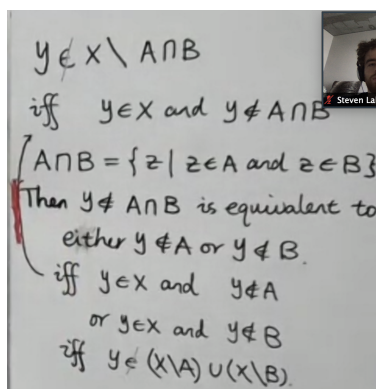 y ∈ X \ A∩B
Steven La
iff y∈X and y∉A∩B
A∩B = {z | z∈A and z∈B}
Then y∉ A∩B is equivalent to
either y∉A or y∉B.
iff y∈X and y∉A
or y∈X and y∉B
iff y∈(X\A)∪(X\B).